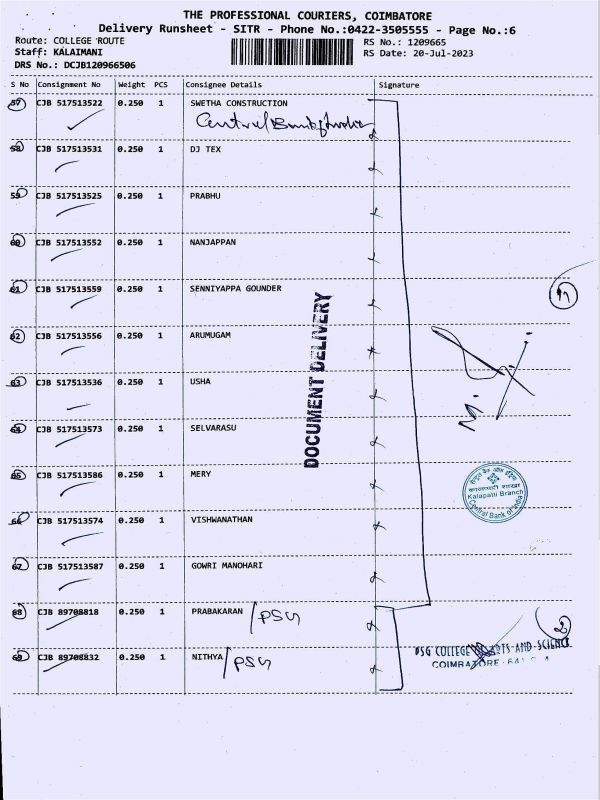 THE PROFESSIONAL COURIERS, COIMBATORE
Delivery Runsheet - SITR - Phone No.:0422-3505555 - Page No.:6
Route: COLLEGE ROUTE RS No.: 1209665
Staff: KALAIMANI RS Date: 20-Jul-2023
DRS No.: DCJB120966506
S No Consignment No Weight PCS Consignee Details Signature
57 CJB 517513522 0.250 1 SWETHA CONSTRUCTION
Central Bank of India
58 CJB 517513531 0.250 1 DJ TEX
59 CJB 517513525 0.250 1 PRABHU
60 CJB 517513552 0.250 1 NANJAPPAN
61 CJB 517513559 0.250 1 SENNIYAPPA GOUNDER
11
62 CJB 517513556 0.250 1 ARUMUGAM
DOCUMENT DELIVERY
63 CJB 517513536 0.250 1 USHA
64 CJB 517513573 0.250 1 SELVARASU
65 CJB 517513586 0.250 1 MERY
Kalapatti Branch
Central Bank of India
66 CJB 517513574 0.250 1 VISHWANATHAN
67 CJB 517513587 0.250 1 GOWRI MANOHARI
68 CJB 89708818 0.250 1 PRABAKARAN / PSG
2
69 CJB 89708832 0.250 1 NITHYA / PSG
PSG COLLEGE ARTS AND SCIENCE
COIMBATORE - 641